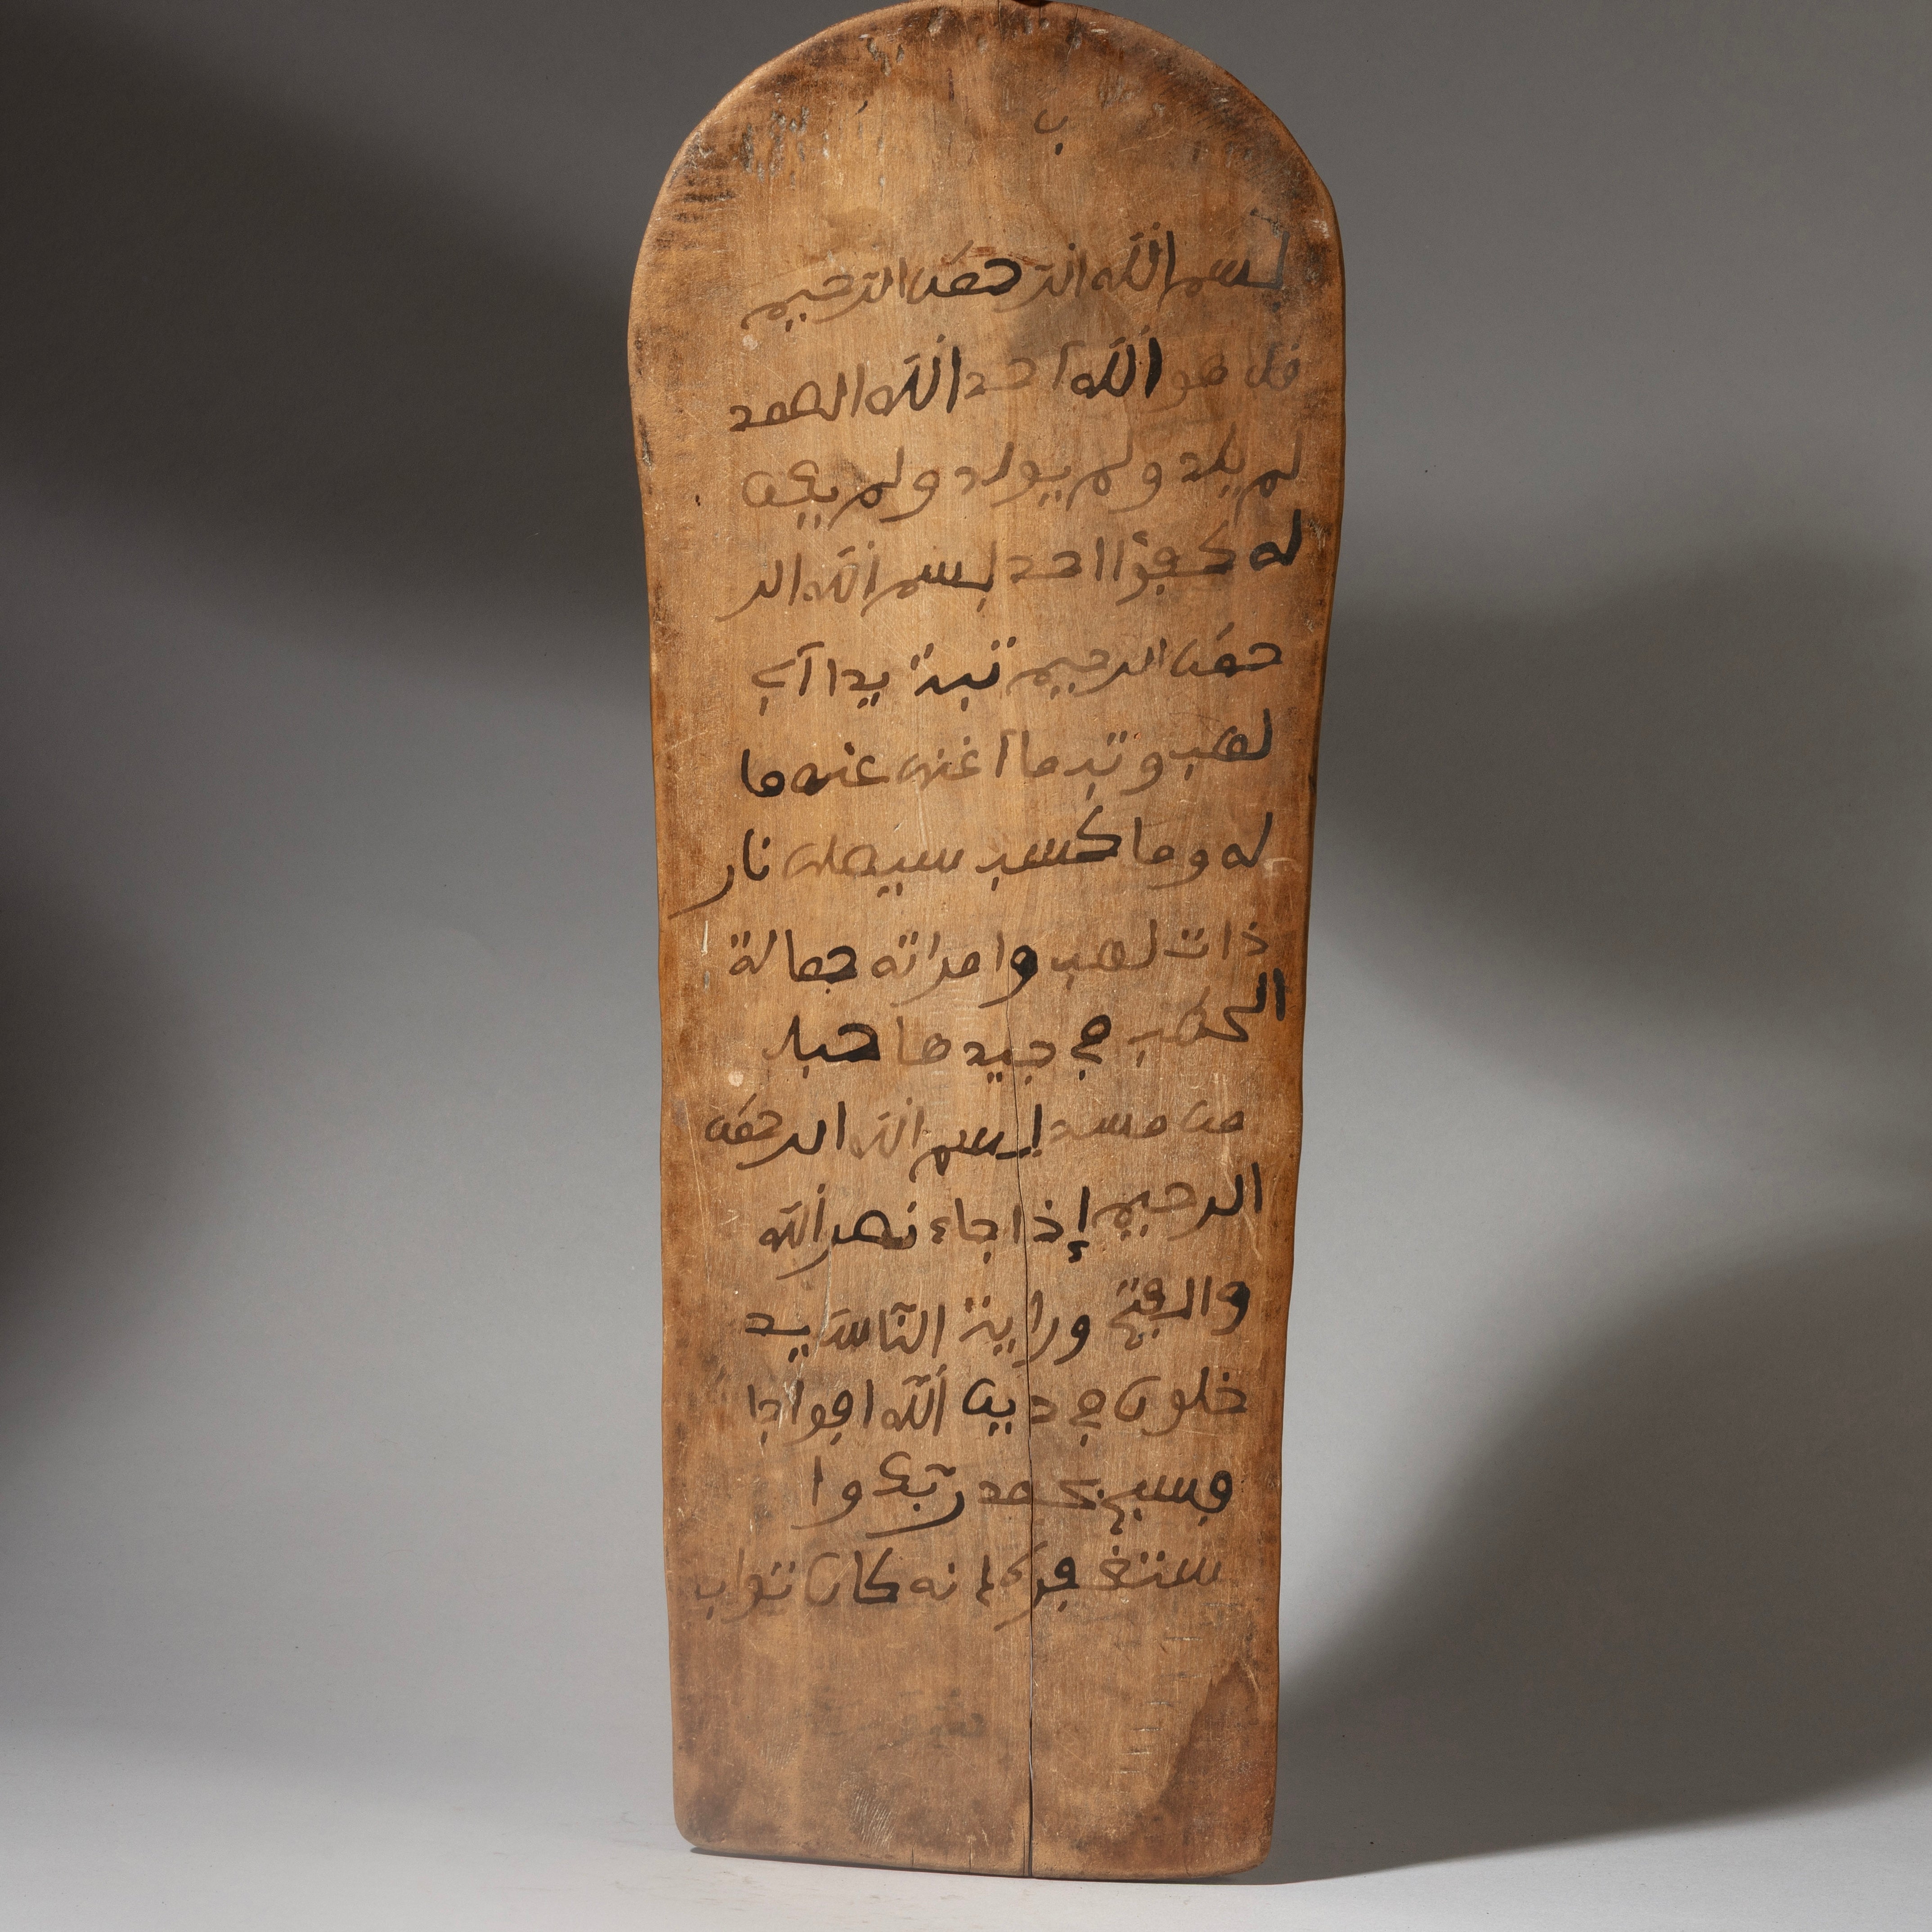 ب
بسم الله الرحمن الرحيم
قل هو الله احد الله الصمد
لم يلد ولم يولد ولم يكن
له كفؤا احد بسم الله الر
حمن الرحيم تبة يدا أبي
لهب وتب ما أغنى عنه ما
له وما كسب سيصلى نار
ذات لهب وامراته حمالة
الحطب في جيدها حبل
من مسد بسم الله الرحمن
الرحيم إذا جاء نصر الله
والفتح وراية الناس يد
خلون في دين الله افواجا
فسبح بحمد ربك وا
ستغفره إنه كان تواب